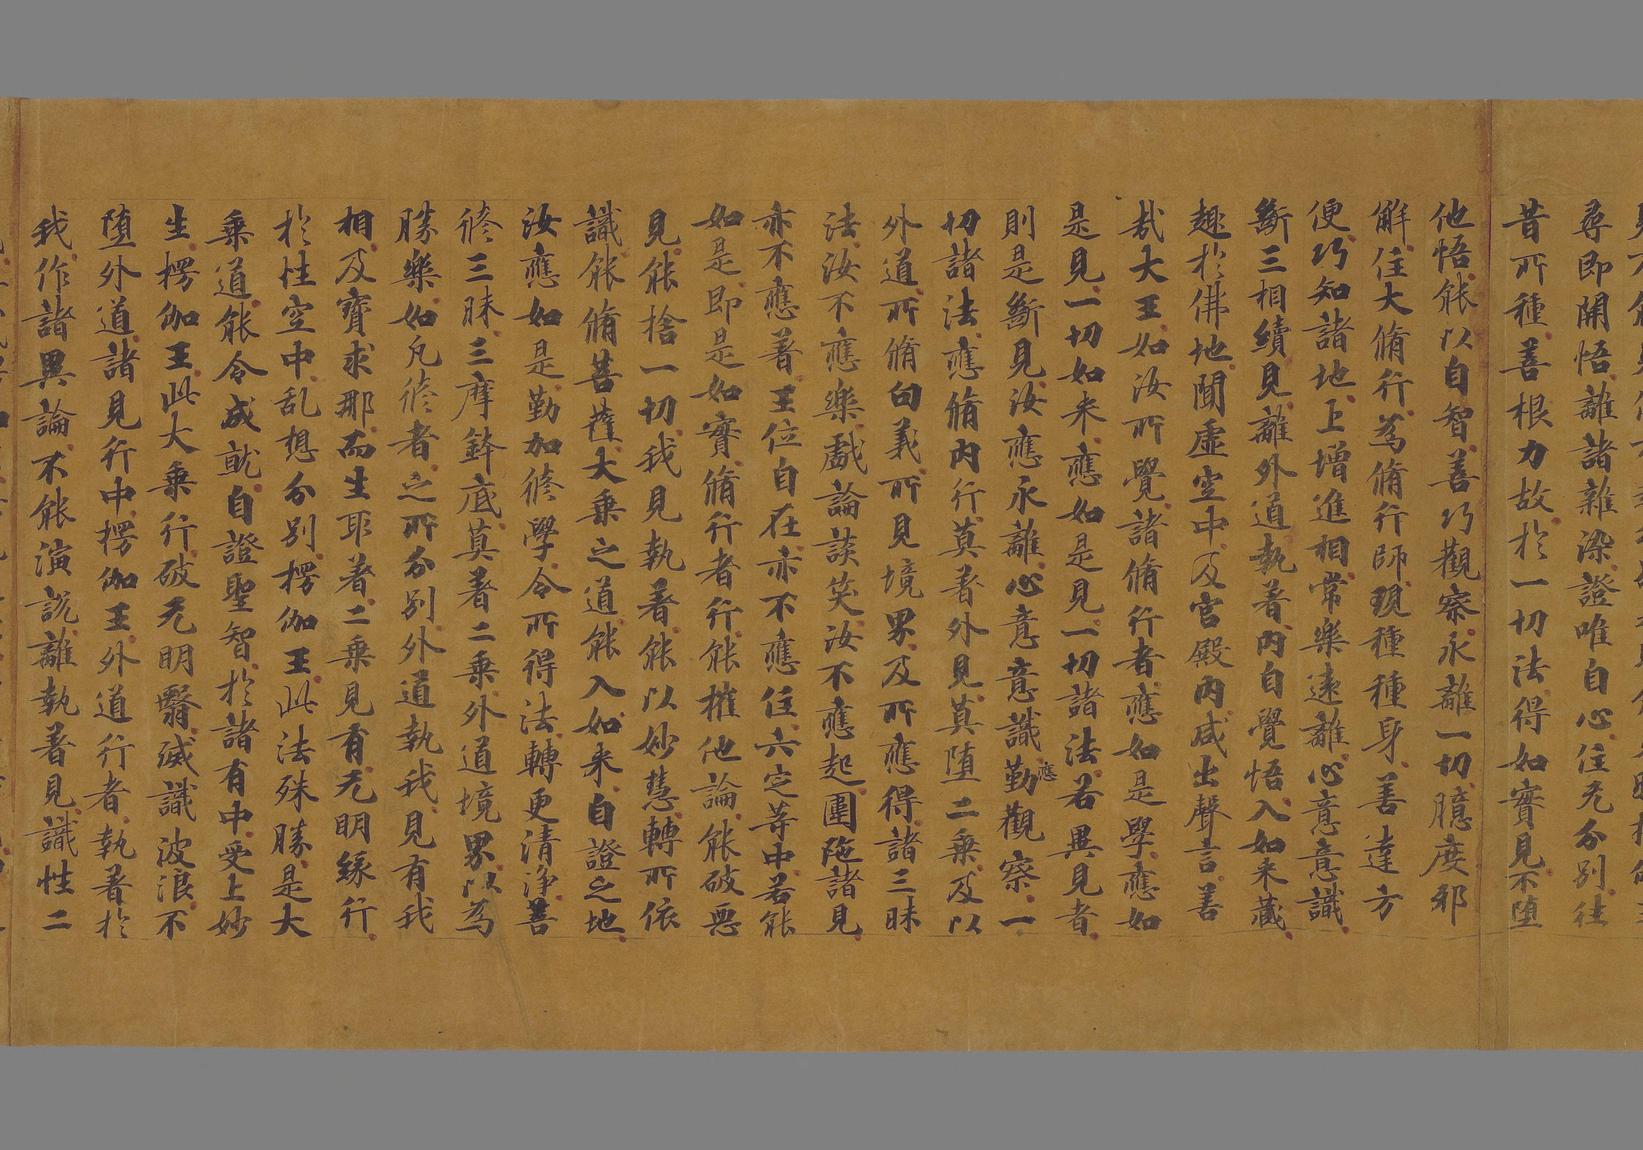 尋即開悟離諸雜染證唯自心住无分別往
昔所種善根力故於一切法得如實見不墮
他悟能以自智善巧觀察永離一切臆度邪
解住大脩行為脩行師現種種身善達方
便巧知諸地上增進相常樂遠離心意意識
斷三相續見離外道執著內自覺悟入如来藏
趣於佛地聞虛空中及宮殿內咸出聲言善
哉大王如汝所覺諸脩行者應如是學應如
是見一切如来應如是見一切諸法若異見者
則是斷見汝應永離心意意識勤應觀察一
切諸法應脩內行莫著外見莫墮二乗及以
外道所脩句義所見境界及所應得諸三昧
法汝不應樂戲論談笑汝不應起圍陁諸見
亦不應著王位自在亦不應住六定等中若能
如是即是如實脩行者行能摧他論能破惡
見能捨一切我見執著能以妙慧轉所依
識能脩菩薩大乗之道能入如来自證之地
汝應如是勤加修學令所得法轉更清淨善
修三昧三摩鉢底莫著二乗外道境界以為
勝樂如凡修者之所分別外道執我見有我
相及實求那而生取著二乗見有无明緣行
於性空中乱想分別楞伽王此法殊勝是大
乗道能令成就自證聖智於諸有中受上妙
生楞伽王此大乗行破无明翳滅識波浪不
墮外道諸見行中楞伽王外道行者執著於
我作諸異論不能演說離執著見識性二